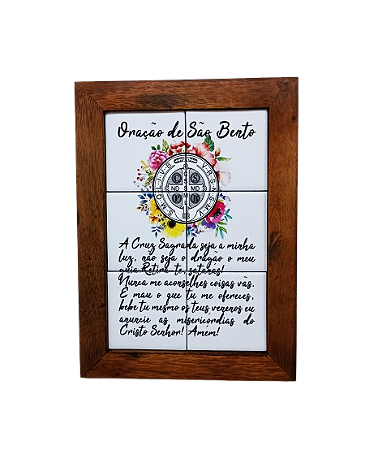 Oração de São Bento
A Cruz Sagrada seja a minha
luz, não seja o dragão o meu
guia. Retira-te, satanás!
Nunca me aconselhes coisas vãs.
É mau o que tu me ofereces,
bebe tu mesmo os teus venenos eu
anuncie as misericórdias do
Cristo Senhor! Amém!